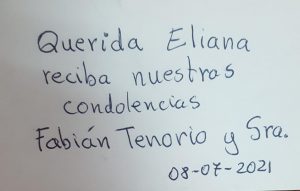 Querida Eliana
reciba nuestras
condolencias
Fabián Tenorio y Sra.
08-07-2021